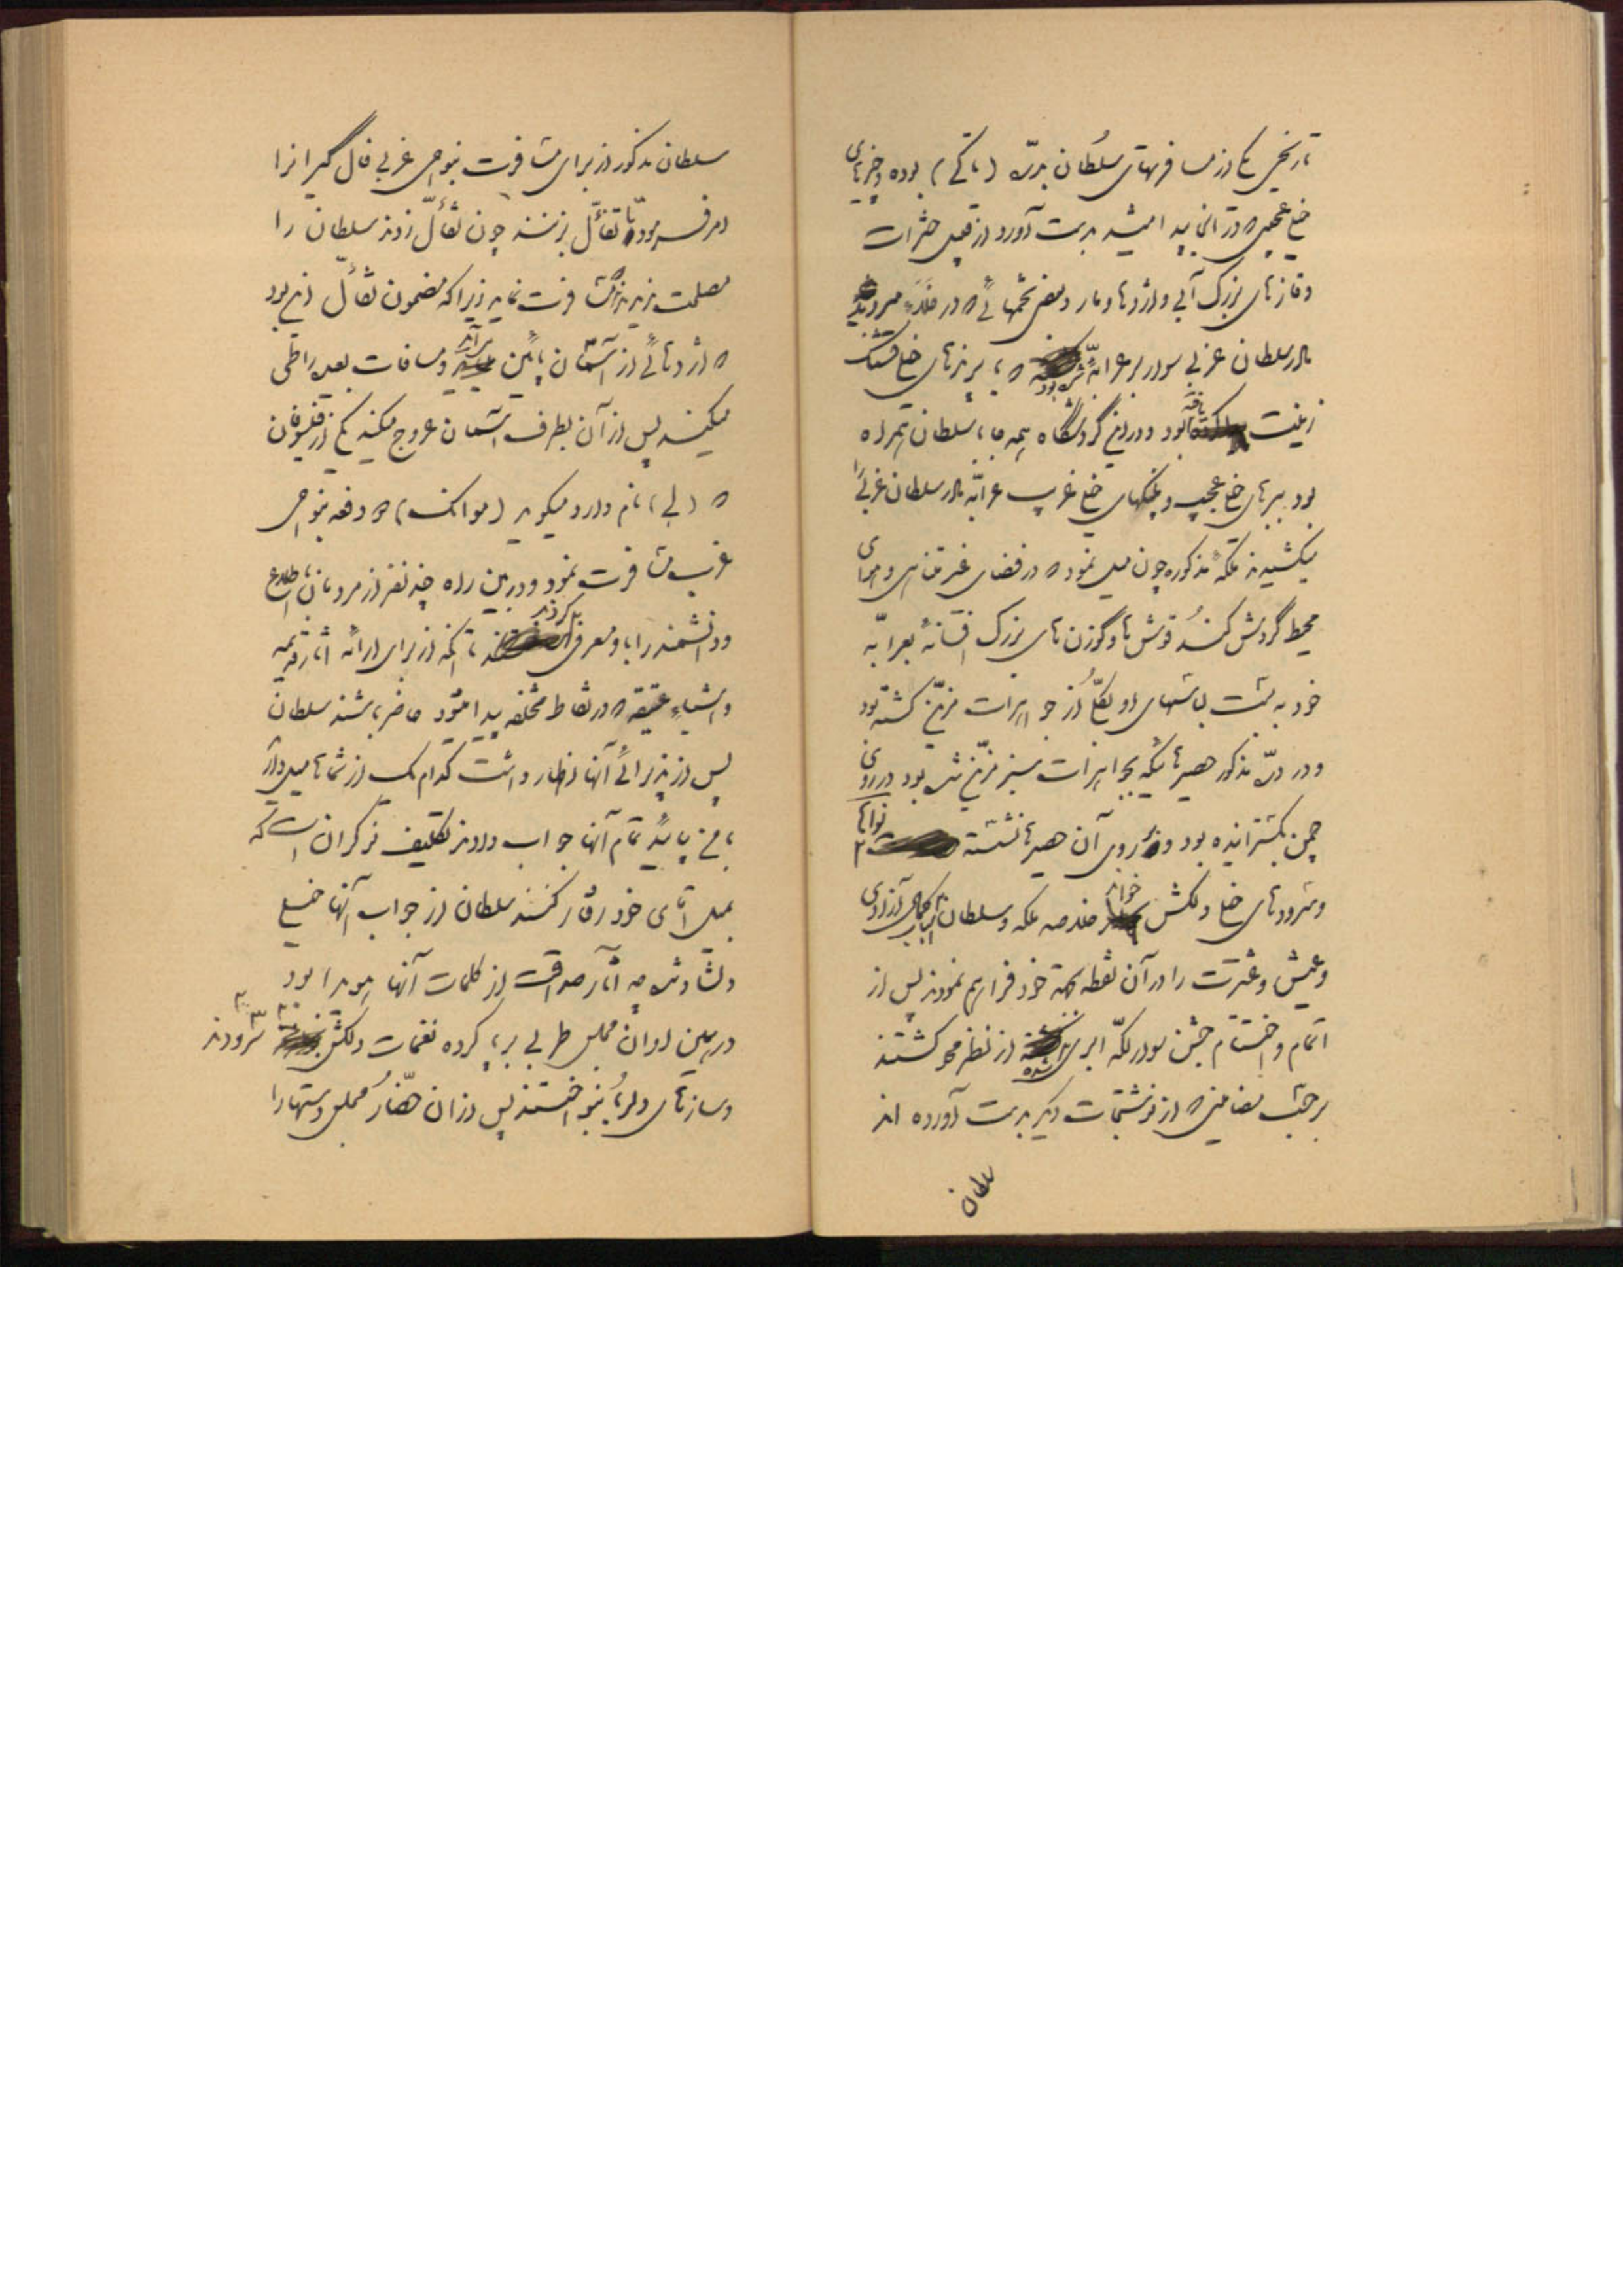 تاریخی یکی از مسافرتهای سلطان بدرّه (تاکی) بوده و چیزهای
خیلی عجیبی که در آنجا پیدا میشد بدست آورد از قبیل حشرات
و غازهای بزرگ آبی و اژدها و مار و بعضی تخمهائی که در خلاء میروید
مادر سلطان غربی سوار بر عرابه شده بود که با پرندهای خیلی قشنگ
زینت یافته بود و در این گردشگاه همه جا با سلطان همراه
بود ببرهای خیلی عجیب و پلنگهای خیلی غریب عرابه مادر سلطان غربی را
میکشیدند ملکه مذکوره چون میل نمود که در فضای غیر متناهی و هوای
محیط گردش کند قوش ها و گوزن های بزرگ افسانه بعرابه
خود به بست بالشهای او بکلّی از جواهرات مزیّن گشته بود
و در درّه مذکور حصیرهائیکه بجواهرات سبز مزیّن شده بود در روی
چمن بگسترانیده بود و در روی آن حصیرها نشسته نواها
و سرودهای خیلی دلکش خواند خلاصه ملکه و سلطان با کمال آزادی
و عیش و عشرت را در آن نقطه بجهة خود فراهم نمودند پس از
اتمام و اختتام جشن سوار لکّه ابری شده از نظر محو گشتند
بر حسب مضامینی که از نوشتجات دیگر بدست آورده اند
سلطان
سلطان مذکور از برای مسافرت بنواحی غربی فال گیرانرا
امر فرمود تا تفأّل بزنند چون تفأّل زدند سلطان را
مصلحت ندیدند که مسافرت نماید زیرا که مضمون تفأّل این بود
که اژدهائی از آسمان پائین می آید و مسافات بعیده را طی
میکند پس از آن بطرف آسمان عروج میکند یکی از فیلسوفان
که (لی) نام دارد میگوید (موانک) که دفعه بنواحی
غرب مسافرت نمود و در بین راه چند نفر از مردمان با اطلاع
و دانشمند را باو معرفی کردند تا آنکه از برای ارائه آثار قدیمه
و اشیاء عتیقه که در نقاط مختلفه پیدا میشود حاضر باشند سلطان
پس از پذیرائی آنها اظهار داشت کدام یک از شماها میل دارد
با من بیاید تمام آنها جواب دادند تکلیف نوکران است که
بمیل آقای خود رفتار کنند سلطان از جواب آنها خیلی
دلشاد شد چه آثار صداقت از کلمات آنها هویدا بود
در همین اوان مجلس طربی برپا کرده نغمات دلکش سرودند
و سازهای دلربا بنواختند پس از آن حضّار مجلس دستها را